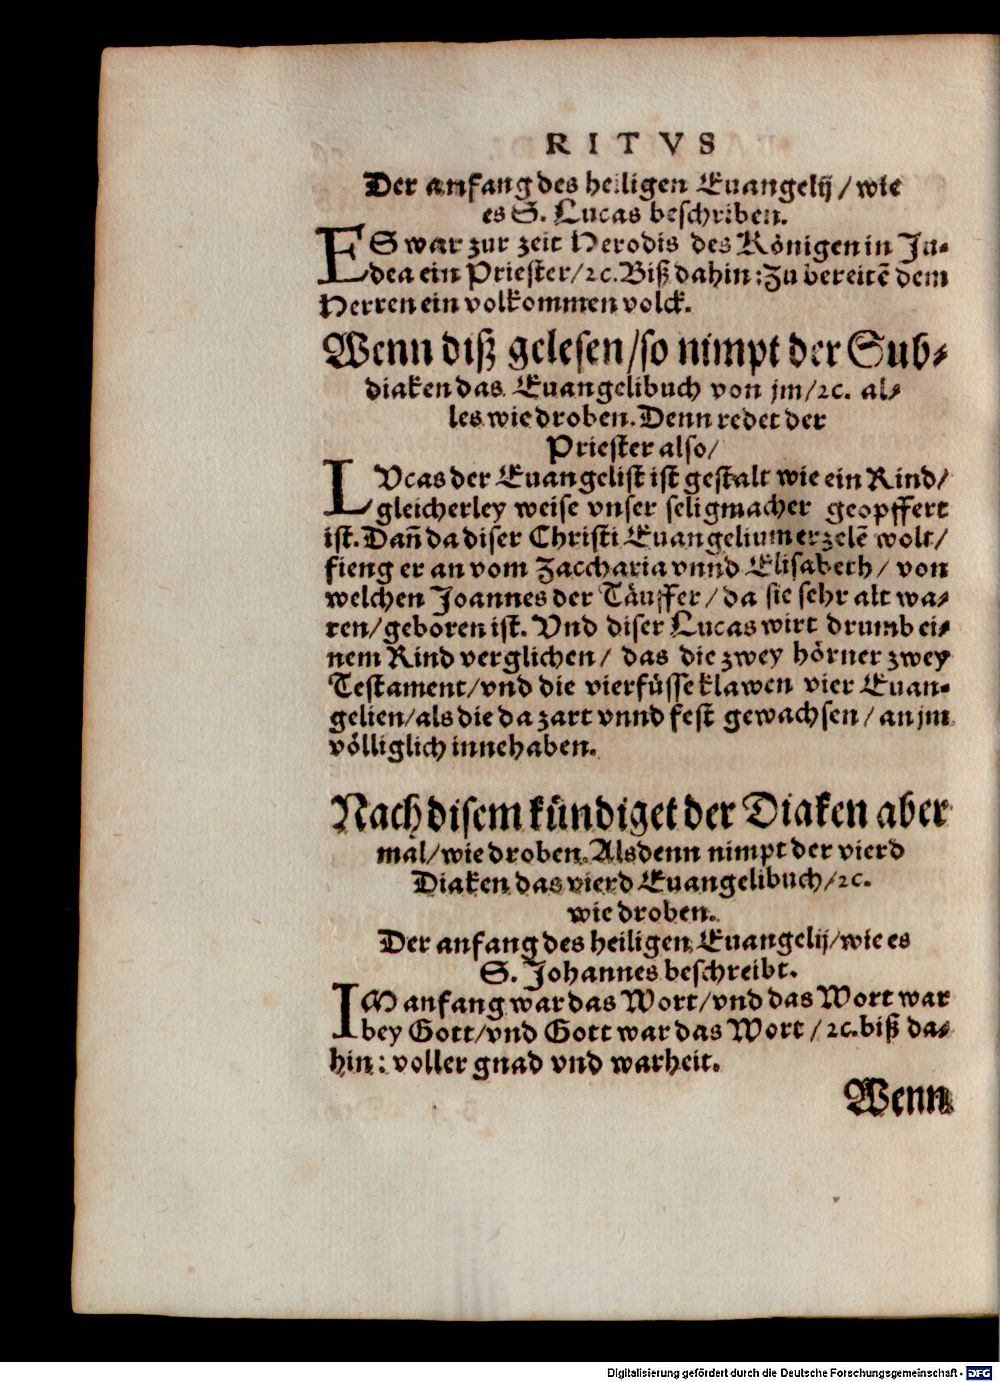 RITVS
Der anfang des heiligen Euangelij / wie
es S. Lucas beschriben.
ES war zur zeit Herodis des Königen in Ju-
dea ein Priester/ꝛc. Biß dahin: Zu bereitẽ dem
Herren ein volkommen volck.
Wenn diß gelesen/so nimpt der Sub-
diaken das Euangelibuch von jm/ꝛc. al-
les wie droben. Denn redet der
Priester also/
LVcas der Euangelist ist gestalt wie ein Rind/
gleicherley weise vnser seligmacher geopffert
ist. Dañ da diser Christi Euangelium erzelẽ wolt/
fieng er an vom Zaccharia vnnd Elisabeth/ von
welchen Joannes der Täuffer/ da sie sehr alt wa-
ren/geboren ist. Vnd diser Lucas wirt drumb ei-
nem Rind verglichen/ das die zwey hörner zwey
Testament/vnd die vierfüsse klawen vier Euan-
gelien/als die da zart vnnd fest gewachsen/ an jm
völliglich innehaben.
Nach disem kündiget der Diaken aber
mal/wie droben. Alsdenn nimpt der vierd
Diaken das vierd Euangelibuch/ꝛc.
wie droben.
Der anfang des heiligen Euangelij/wie es
S. Johannes beschreibt.
IM anfang war das Wort/vnd das Wort war
bey Gott/vnd Gott war das Wort /ꝛc. biß da-
hin: voller gnad vnd warheit.
Wenn
Digitalisierung gefördert durch die Deutsche Forschungsgemeinschaft - DFG